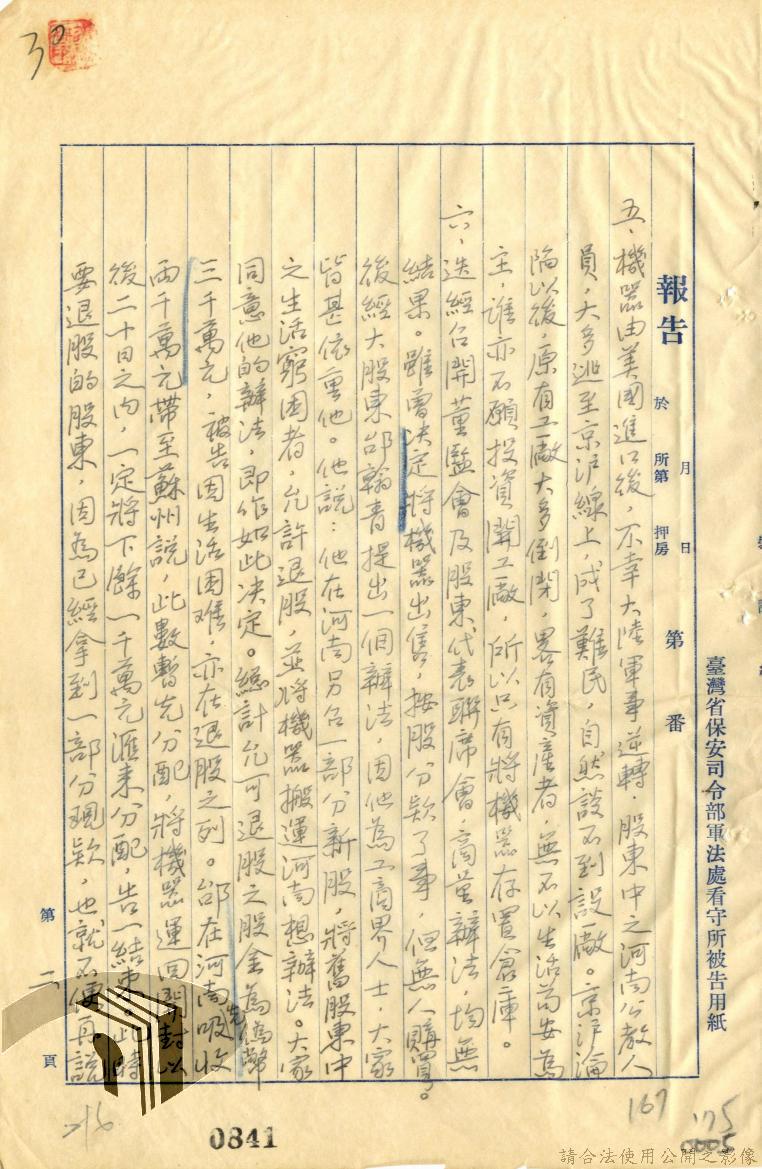 30
臺灣省保安司令部軍法處看守所被告用紙
報告
於 所第 押房
月 日
第 番
五、機器由美國進口後，不幸大陸軍事逆轉，股東中之河南公教人
員，大多逃至京沪線上，成了難民，自然談不到設廠。京沪淪
陷以後，原有工廠大多倒閉，畧有資產者，無不以生活苟安為
主，誰亦不願投資開工廠，所以只有將機器存置倉庫。
六、迭經召開董監會及股東代表聯席會，商量辦法，均無
結果。雖曾决定將機器出售，按股分欵了事，但無人購買。
後經大股東邰翰青提出一個辦法，因他為工商界人士，大家
皆甚依重他。他説：他在河南另召一部分新股，將舊股東中
之生活窮困者，允許退股，並將機器搬運河南想辦法。大家
同意他的辦法，即作如此决定。總計允可退股之股金為偽幣
三千萬元，被告因生活困难，亦在退股之列。邰在河南先吸收
兩千萬元帶至蘇州説，此數暫先分配，將機器運回開封以
後二十日之内，一定將下餘一千萬元滙來分配，告一結束。此時
要退股的股東，因為已經拿到一部分現欵，也就不便再説
第 二 頁
0841
167
175
0005
請合法使用公開之影像